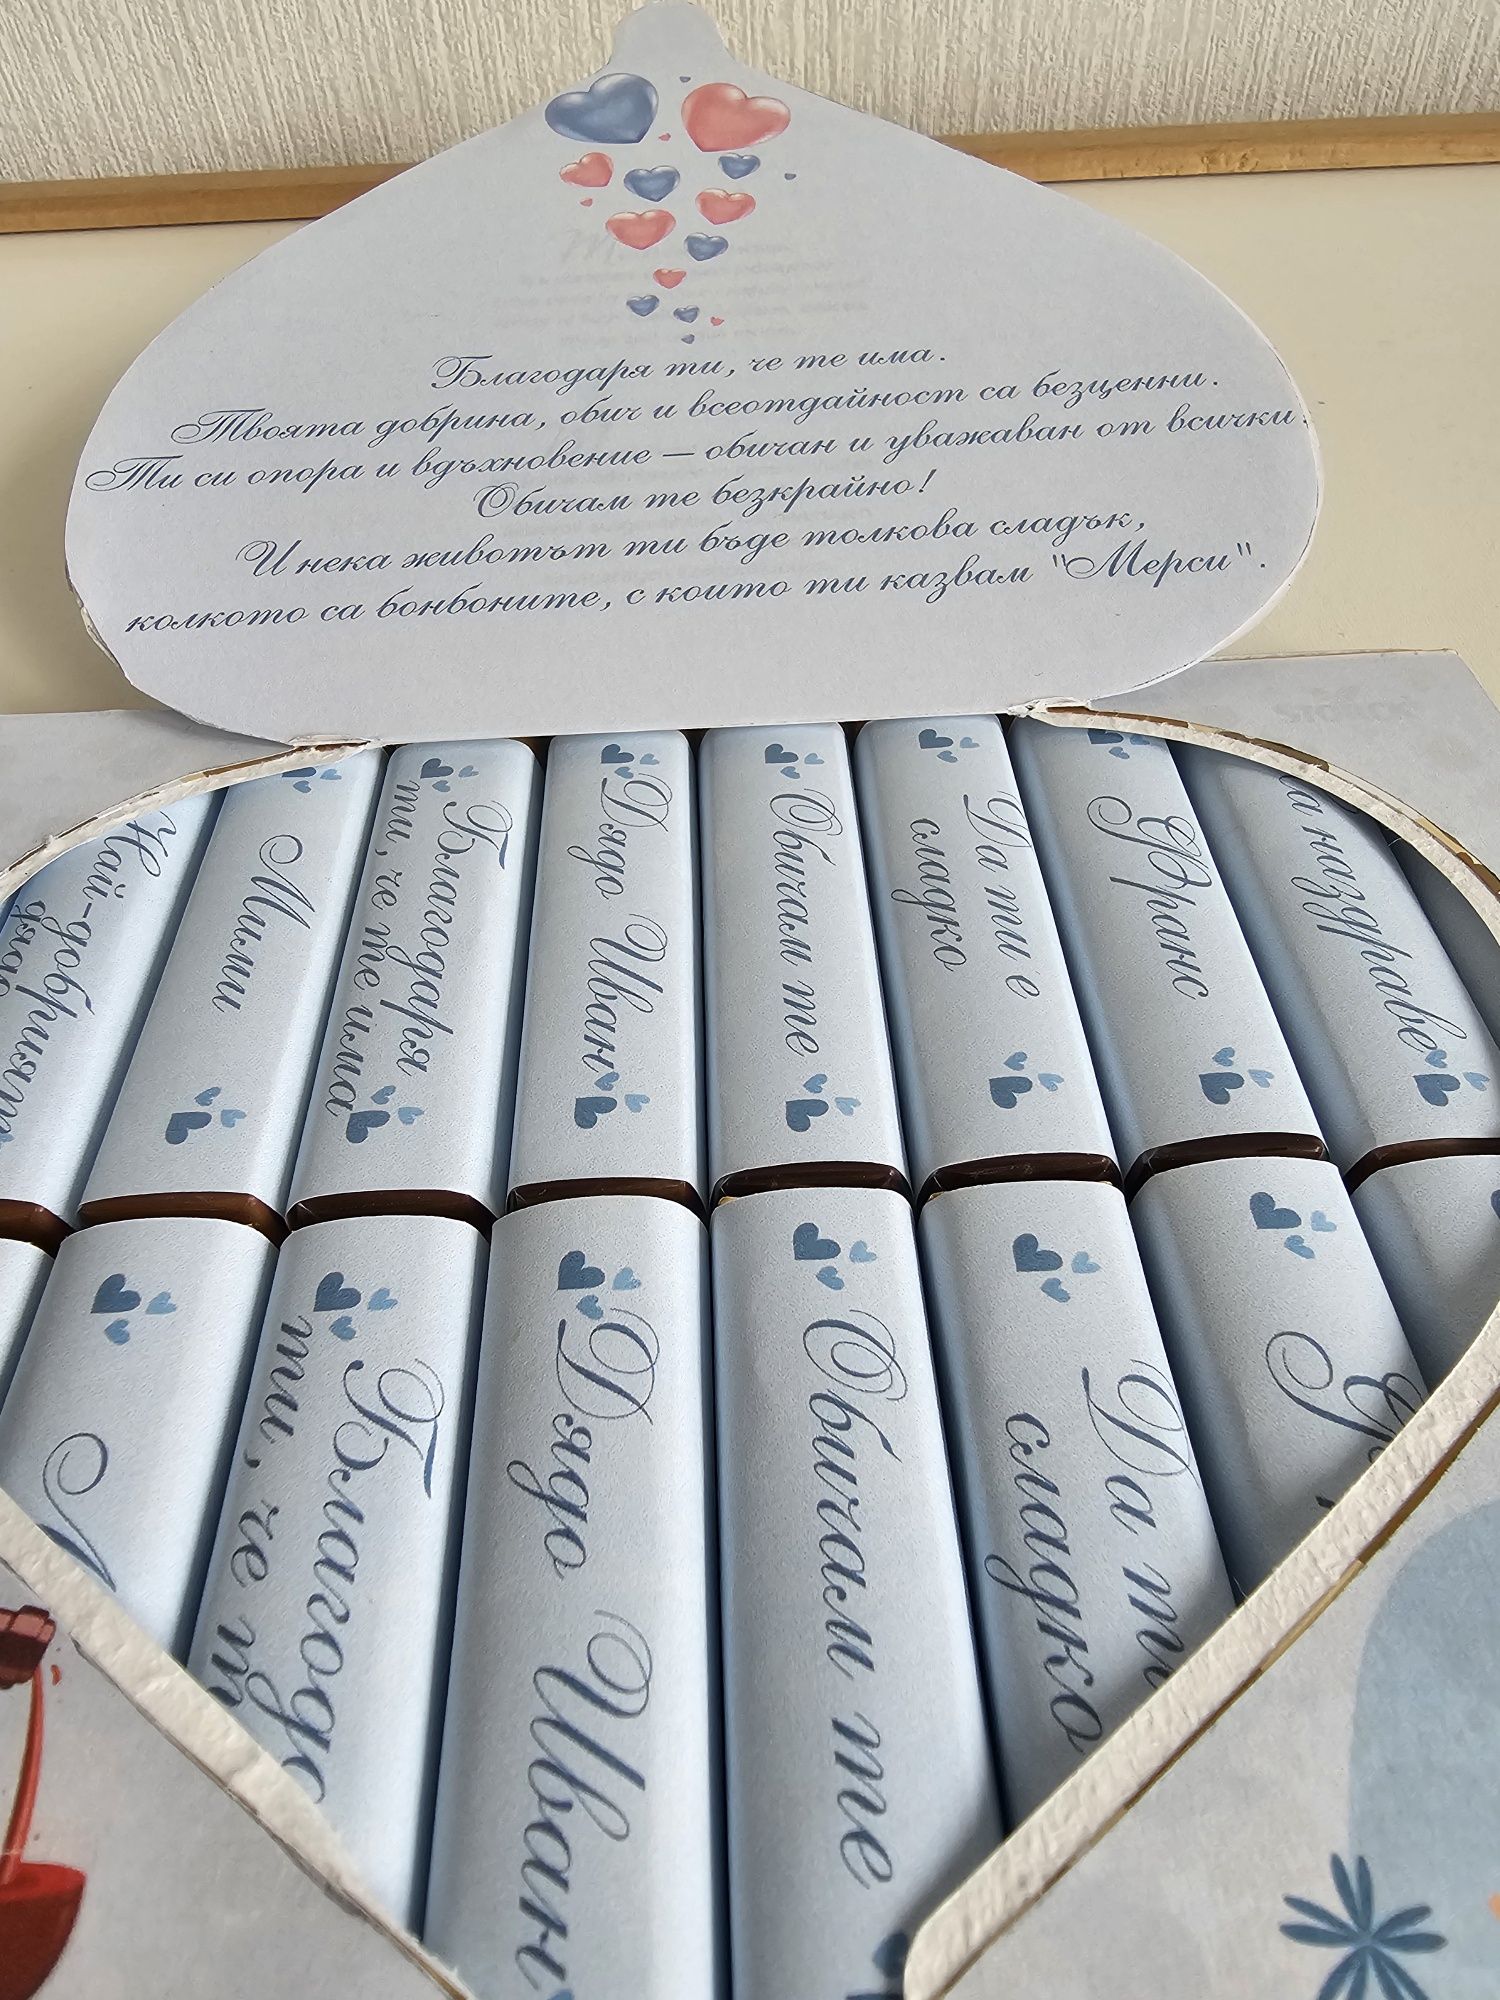 Благодаря ти, че те има.
Твоята добрина, обич и всеотдайност са безценни.
Ти си опора и вдъхновение – обичан и уважаван от всички.
Обичам те безкрайно!
И нека животът ти бъде толкова сладък,
колкото са бонбоните, с които ти казвам "Мерси".
Най-добрият
дядо
Мими
Благодаря
ти, че те има
Дядо Иван
Обичам те
Да ти е
сладко
Франс
На наздраве
Благода
ти, че т
Дядо Иван
Обичам те
Да т
сладко